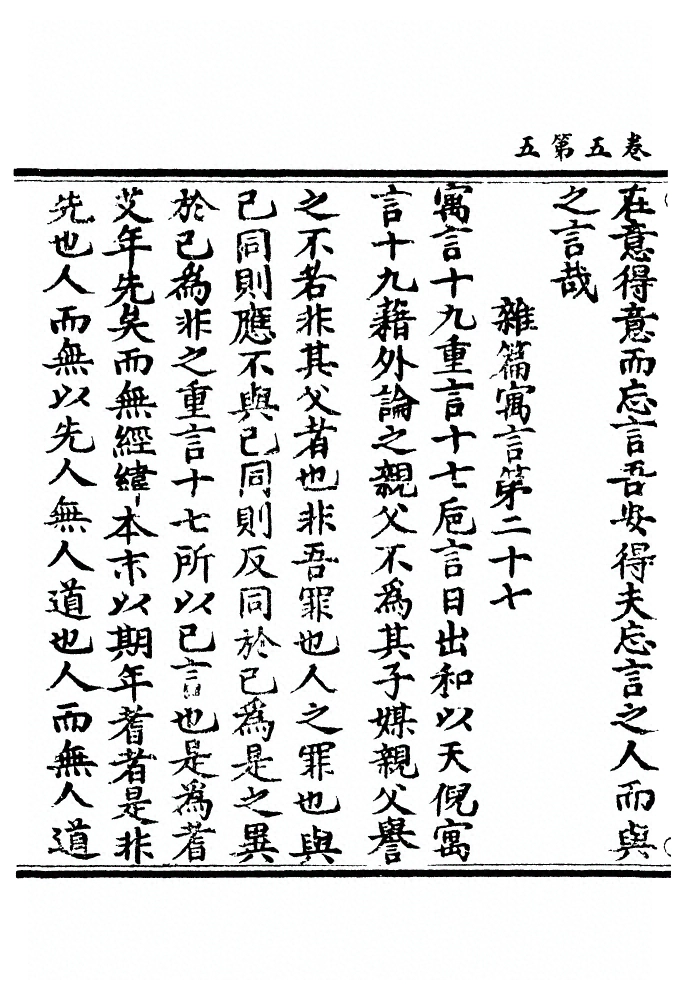 卷五第五
在意得意而忘言吾安得夫忘言之人而與
之言哉
雜篇寓言第二十七
寓言十九重言十七巵言日出和以天倪寓
言十九藉外論之親父不為其子媒親父譽
之不若非其父者也非吾罪也人之罪也與
己同則應不與己同則反同於己為是之異
於己為非之重言十七所以己言也是為耆
艾年先矣而無經緯本末以期年耆者是非
先也人而無以先人無人道也人而無人道